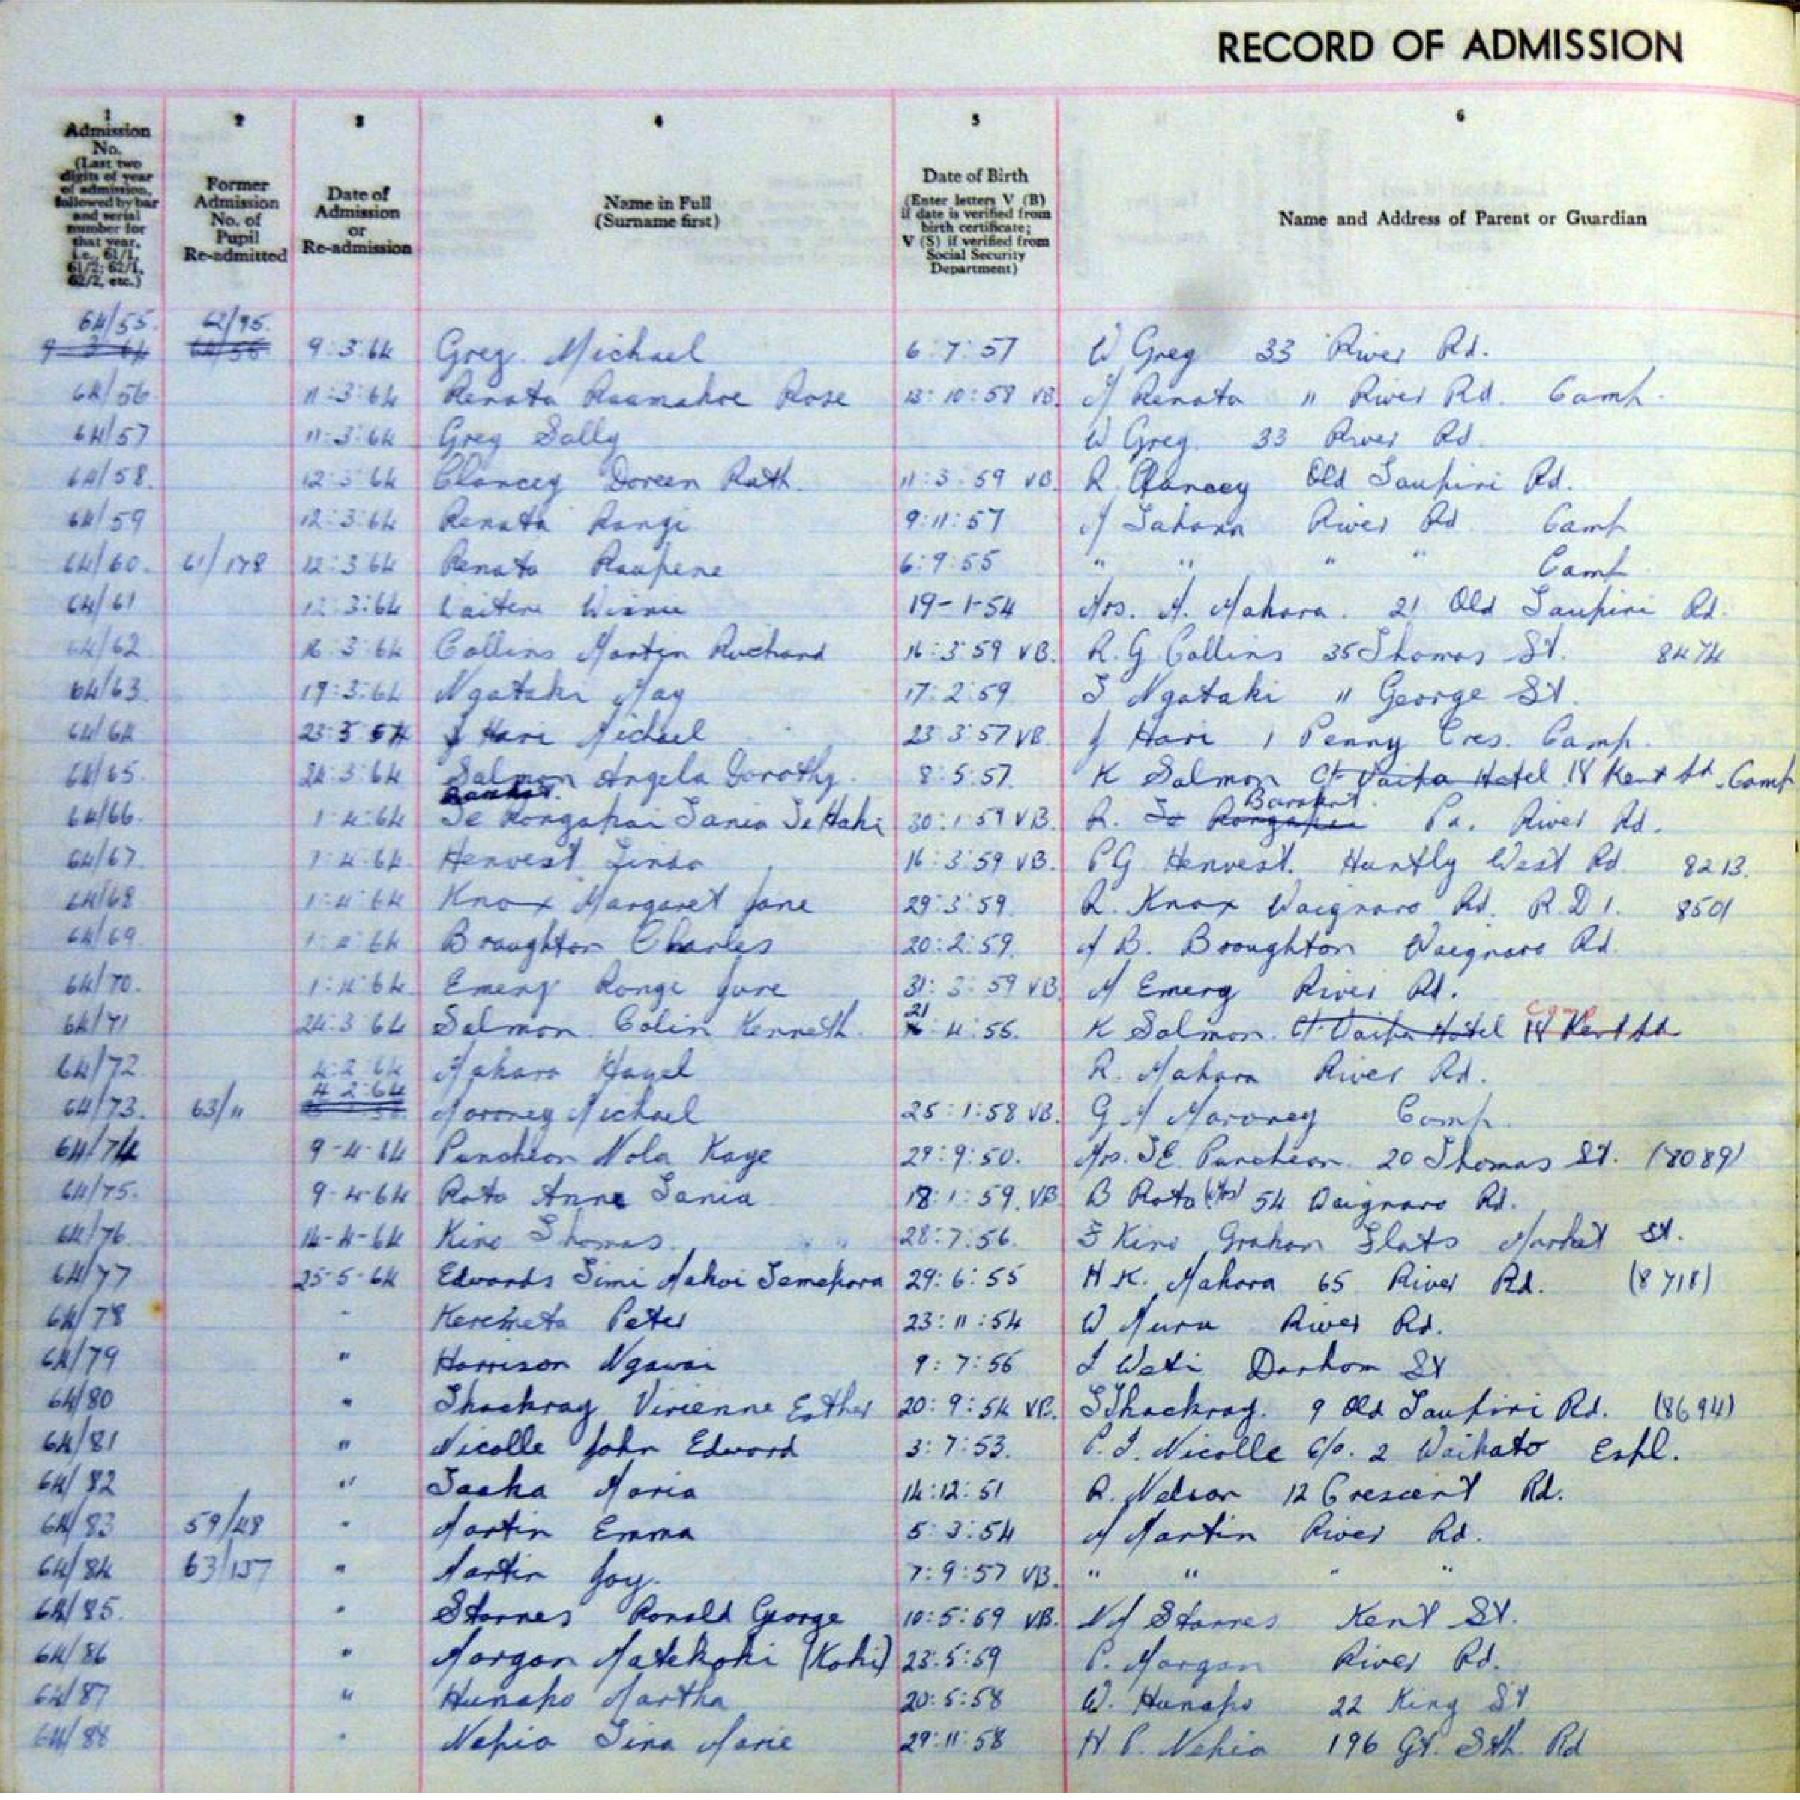 RECORD OF ADMISSION
1 2 3 4 5 6
Admission No. (Last two digits of year of admission, followed by bar and serial number for that year, i.e., 61/1, 61/2; 62/1, 62/2, etc.)
Former Admission No. of Pupil Re-admitted
Date of Admission or Re-admission
Name in Full (Surname first)
Date of Birth (Enter letters V (B) if date is verified from birth certificate; V (S) if verified from Social Security Department)
Name and Address of Parent or Guardian
64/55. 62/95. 9:3:64 Greg Michael 6:7:57 W Greg 33 River Rd.
64/56. 11:3:64 Renata Raamahoe Rose 13:10:58 VB. M Renata " River Rd. Camp.
64/57 11:3:64 Greg Sally W Greg. 33 River Rd.
64/58. 12:3:64 Clancey Doreen Ruth. 11:3:59 VB. R. Clancey Old Taupiri Rd.
64/59 12:3:64 Renata Rangi 9:11:57 M Tahana River Rd Camp
64/60. 61/178 12:3:64 Renata Raupene 6:9:55 " " " " Camp
64/61 12:3:64 Waitere Winnie 19-1-54 Mrs. A. Mahara. 21 Old Taupiri Rd.
64/62 16:3:64 Collins Martin Richard 16:3:59 VB. R.G Collins 35 Thomas St. 8474
64/63. 19:3:64 Ngataki May 17:2:59. T Ngataki " George St.
64/64 23:3:64 Hari Michael 23:3:57 VB J Hari 1 Penny Cres. Camp.
64/65. 24:3:64 Salmon Angela Dorothy. 8:5:57. K Salmon C/- Waipa Hotel 18 Kent St. Camp
64/66. 1:4:64 Te Rongapai Tania Te Hahi 30:1:59 VB. R. Te Rongapai Pa. River Rd.
64/67. 1:4:64 Henvest Linda 16:3:59 VB. P G Henvest. Huntly West Rd 8213.
64/68 1:4:64 Knox Margaret Jane 29:3:59. R. Knox Waignaro Rd. R.D 1. 8501
64/69. 1:4:64 Broughton Charles 20:2:59. M B. Broughton Waignaro Rd.
64/70. 1:4:64 Emery Rangi June 31:3:59 VB M Emery River Rd.
64/71 24:3:64 Salmon. Colin Kenneth. 21:4:55. K Salmon. C/- Waipa Hotel 18 Kent St. Camp
64/72 4:2:64 Mahara Hazel R. Mahara River Rd.
64/73. 63/11 4:2:64 Maroney Michael 25:1:58 VB. G M Maroney Camp.
64/74 9-4-64 Puncheon Nola Kaye 29:9:50. Mrs. T.E. Puncheon. 20 Thomas St. (8089)
64/75. 9-4-64 Rota Anne Tania 18:1:59. VB B Rota (Mrs) 54 Waignaro Rd.
64/76 14-4-64 Kino Thomas. 28:7:56. F Kino Graham Flats Market St.
64/77 25-5-64 Edwards Timi Makoi Temepara 29:6:55 H K. Mahara 65 River Rd. (8718)
64/78 " Kereimeta Peter 23:11:54 W Muru River Rd.
64/79 " Harrison Ngawai 9:7:56 Weti Durham St
64/80 " Thackray Vivienne Esther 20:9:54 VB. S Thackray. 9 Old Taupiri Rd. (8694)
64/81 " Nicolle John Edward 3:7:53. P. J. Nicolle C/o. 2 Waikato Espl.
64/82 " Taaka Maria 14:12:51 R. Nelson 12 Crescent Rd.
64/83 59/48 " Martin Emma 5:3:54 M Martin River Rd.
64/84 63/157 " Martin Joy. 7:9:57 VB. " " " "
64/85. " Starnes Ronald George 10:5:59 VB. N M Starnes Kent St.
64/86 " Morgan Matekohi (Kohi) 23:5:59 P. Morgan River Rd.
64/87 " Hunapo Martha 20:5:58 W. Hunapo 22 King St
64/88 " Nepia Tina Marie 29:11:58 H P. Nepia 196 Gt. Sth. Rd